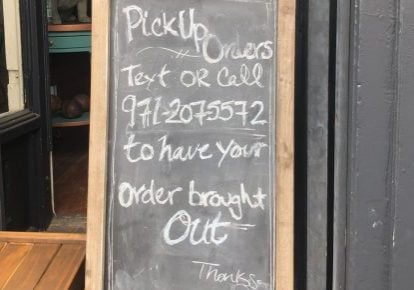 PickUp
Orders
Text OR Call
971-2075572
to have your
order brought
Out
Thanks